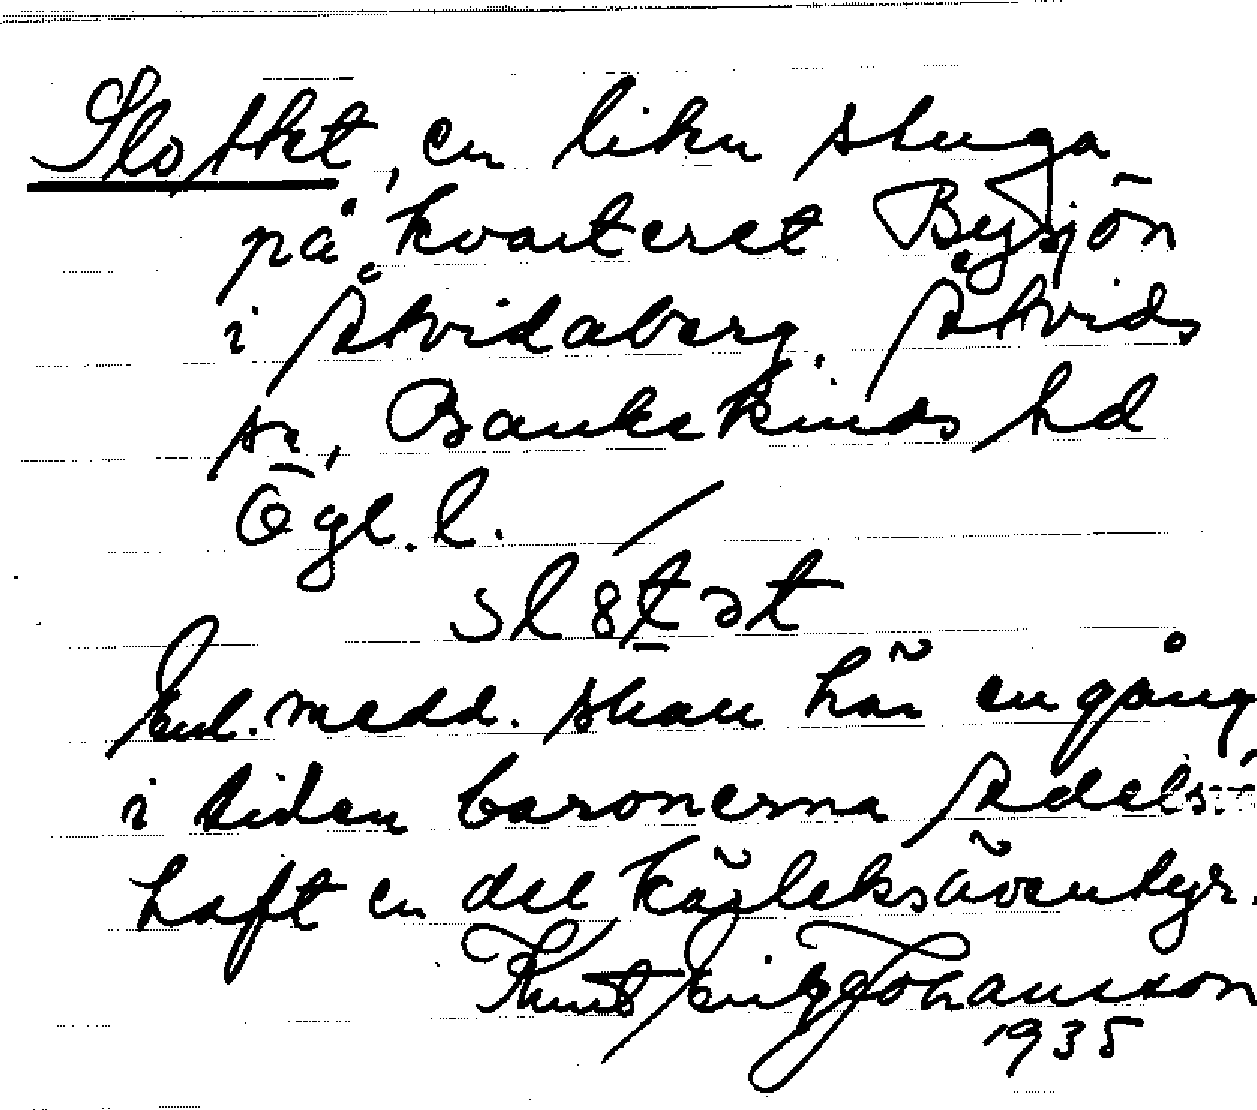 Slottet, en liten stuga
på kvarteret Bysjön
i Åtvidaberg. Åtvids
sn, Bankekinds hd
Ögl. l.
sl8tət
Enl. medd. skall här en gång
i tiden baronerna Adels
haft en del kärleksäventyr.
Knut Erik Johansson
1935